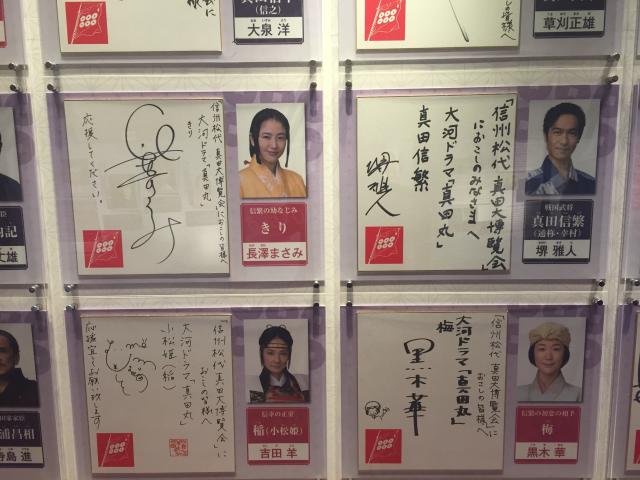 に
の皆様へ
(信之)
大泉 洋
の皆様へ
草刈正雄
「信州松代 真田大博覧会」におこしの皆様へ
大河ドラマ「真田丸」
きり
応援してください。
信繁の幼なじみ
きり
長澤まさみ
「信州松代 真田大博覧会」
におこしのみなさまへ
大河ドラマ「真田丸」
真田信繁
堺雅人
戦国武将
真田信繁
(通称・幸村)
堺 雅人
「信州松代 真田大博覧会」に
おこしの皆様へ
大河ドラマ「真田丸」
小松姫(稲)
応援宜しくお願い致します
信幸の正室
稲(小松姫)
吉田 羊
「信州松代 真田大博覧会」に
おこしの皆様へ
大河ドラマ「真田丸」
梅
黒木華
信繁の初恋の相手
梅
黒木 華
昌相
寺島 進